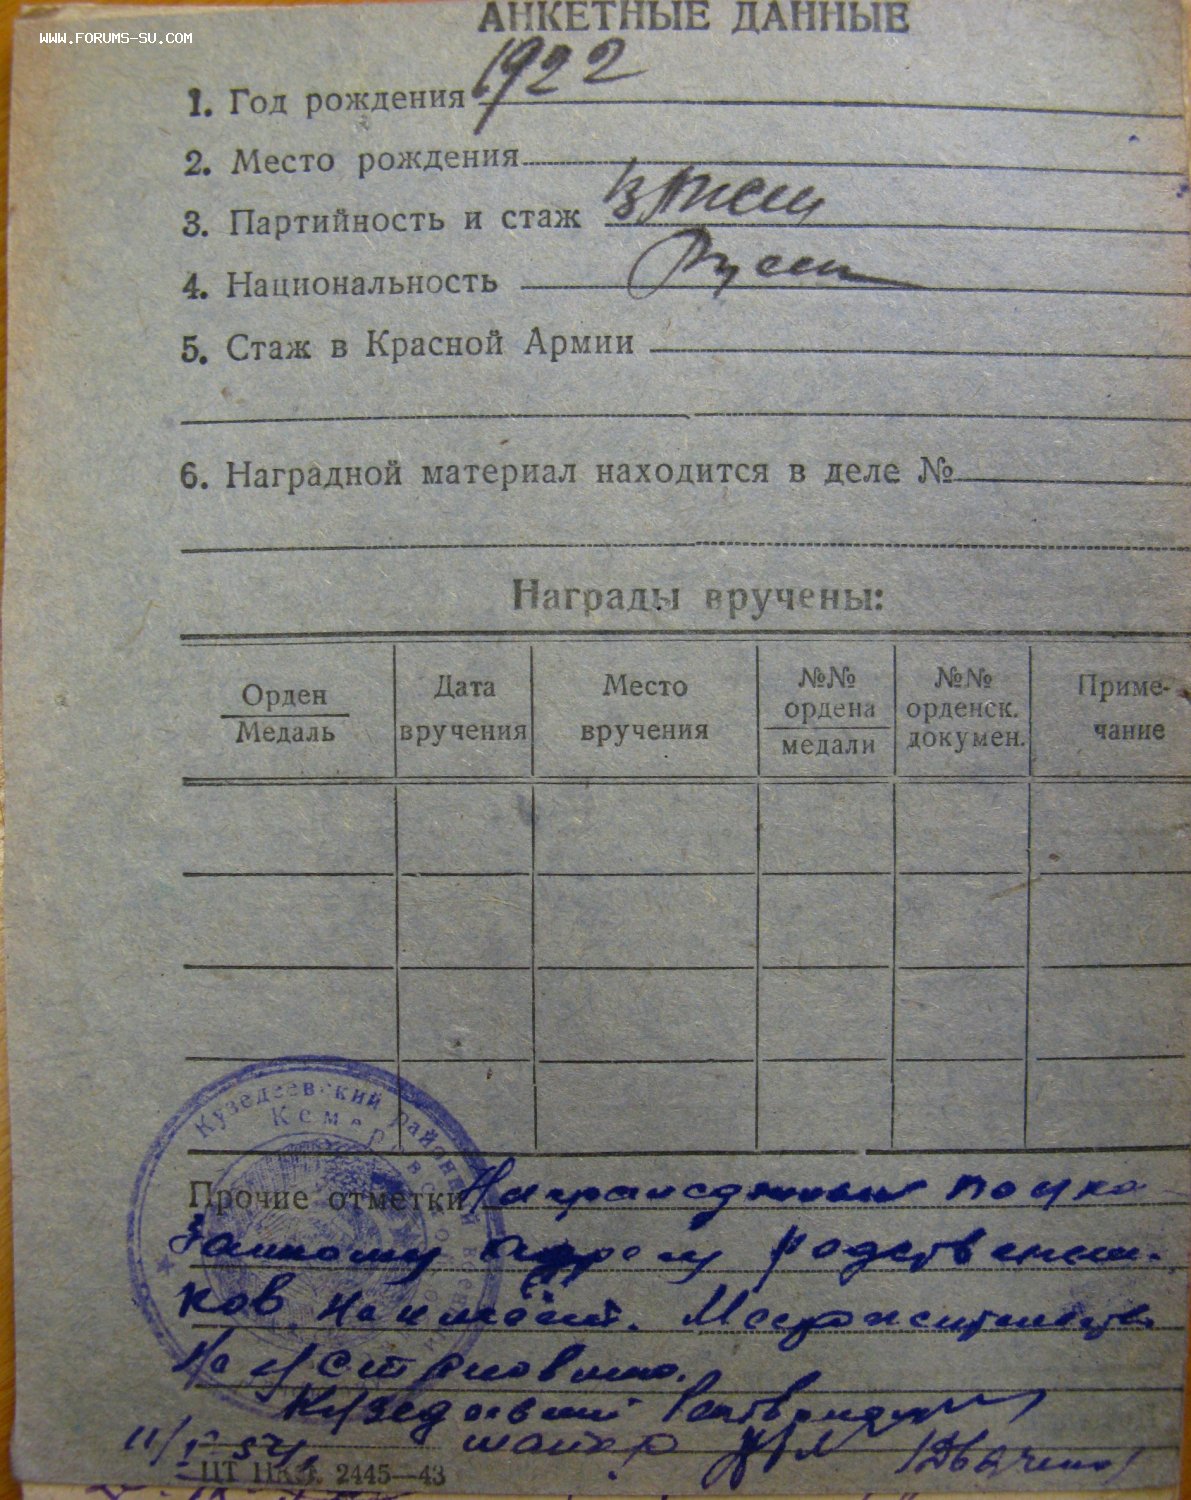 WWW.FORUMS-SU.COM
АНКЕТНЫЕ ДАННЫЕ
1. Год рождения 1922
2. Место рождения
3. Партийность и стаж
4. Национальность Русск
5. Стаж в Красной Армии
6. Наградной материал находится в деле №
Награды вручены:
Орден
Медаль
Дата
вручения
Место
вручения
№№
ордена
медали
№№
орденск.
докумен.
Приме-
чание
Кузедеевский район
Прочие отметки Награжденный по ука
занному адресу родственни-
ков не имеет. Местожительство
не установлено.
Кузедеевский
майор
ЦТ НКО. 2445—43